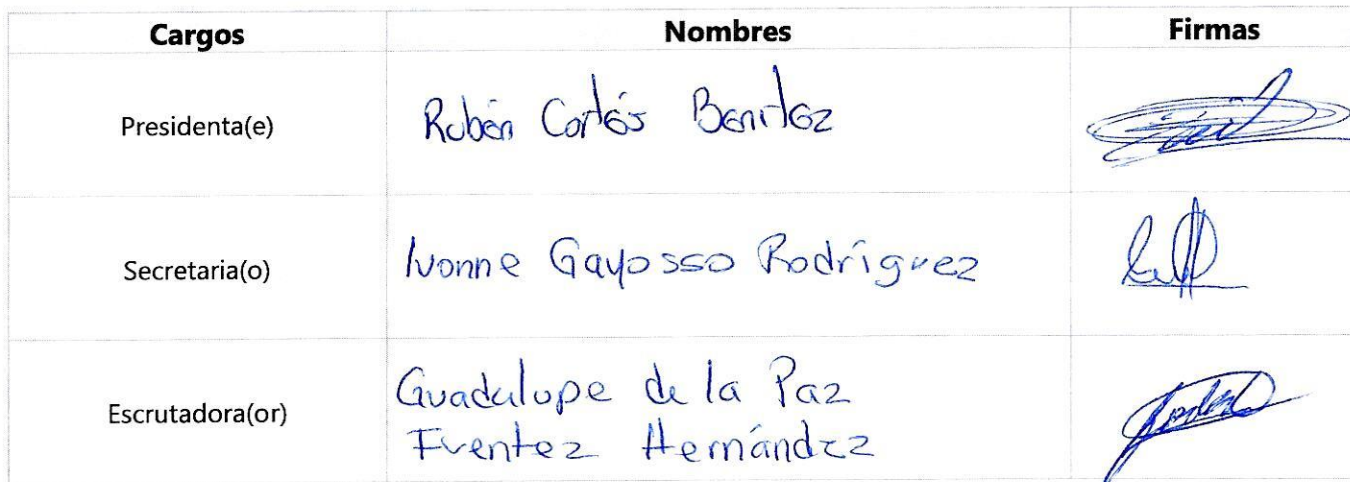 Cargos Nombres Firmas
Presidenta(e) Rubén Cortés Benitez
Secretaria(o) Ivonne Gayosso Rodríguez
Escrutadora(or) Guadalupe de la Paz
Fuentez Hernández